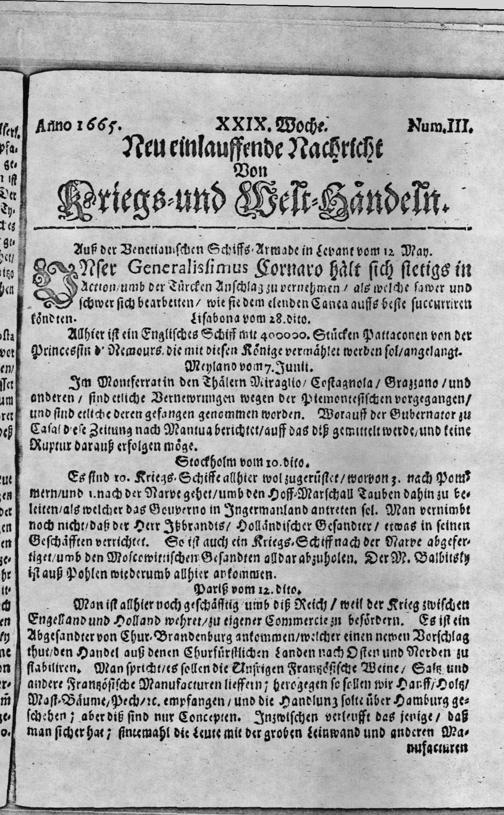 Anno 1665. XXIX. Woche. Num. III.
Neu einlauffende Nachricht
Von
Kriegs- und Welt-Händeln.
Auß der Venetianischen Schiffs-Armade in Levant vom 12 May.
UNser Generalissimus Cornaro hält sich stetigs in
Action/umb der Türcken Anschlag zu vernehmen / als welche sawer und
schwer sich bearbeiten / wie sie dem elenden Canea auffs beste succurriren
köndten. Lisabona vom 28. dito.
Allhier ist ein Englisches Schiff mit 400000. Stücken Pattaconen von der
Princessin d' Nemours, die mit diesen Könige vermählet werden sol/angelangt.
Meyland vom 7. Junii.
Im Montferrat in den Thälern Miraglio/ Costagnola / Grazzano / und
anderen / sind etliche Verwerungen wegen der Piemontesischen vorgegangen/
und sind etliche deren gefangen genommen worden. Worauff der Gubernator zu
Casal diese Zeitung nach Mantua berichtet/auff das diß gemittelt werde/und keine
Ruptur darauß erfolgen möge.
Stockholm vom 10. dito.
Es sind 10. Kriegs-Schiffe allhier wol zugerüstet/ worvon 3. nach Pom-
mern/und 1. nach der Narve gehet/umb den Hoff-Marschall Tauben dahin zu be-
leiten/als welcher das Gouverno in Ingermanland antreten sol. Man vernimbt
noch nicht/daß der Herr Ißbrandts/ Holländischer Gesandter / etwas in seinen
Geschäfften verrichtet. So ist auch ein Kriegs-Schiff nach der Narve abgefer-
tiget/umb den Moscowittischen Gesandten alldar abzuholen. Der M. Balbitsky
ist auß Pohlen wiederumb allhier ankommen.
Pariß vom 12. dito.
Man ist allhier noch geschäfftig umb diß Reich / weil der Krieg zwischen
Engelland und Holland wehret/zu eigener Commercie zu befördern. Es ist ein
Abgesandter von Chur-Brandenburg ankommen/welcher einen newen Vorschlag
thut/den Handel auß denen Churfürstlichen Landen nach Osten und Norden zu
stabiliren. Man spricht/es sollen die Unsrigen Frantzösische Weine / Saltz und
andere Frantzösische Manufacturen lieffern; herogegen so sollen wir Hanff/Holtz/
Mast-Bäume/Pech/ꝛc. empfangen / und die Handlung solte über Hamburg ge-
schehen ; aber diß sind nur Concepten. Inzwischen verleufft das jenige / daß
man sicher hat ; sintemahl die Leute mit der groben Leinwand und anderen Ma-
nufacturen